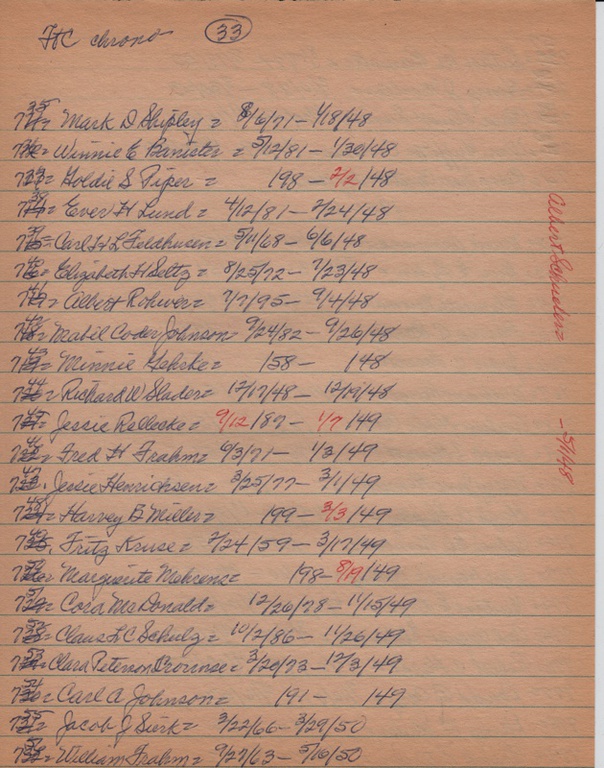 HC chrono 33
735= Mark D Shipley = 8/6/71 – 1/18/48
736= Winnie E Banister = 5/12/81 – 1/30/48
737= Goldie S Piper = 198 – 2/2/48
738= Ever H Lund = 4/12/81 – 2/24/48
739= Carl H L Feldhusen = 5/11/68 – 6/6/48
740= Elizabeth H Seltz = 8/25/72 – 7/23/48
741= Albert Rohwer = 7/7/95 – 9/4/48
742= Mabil Coder Johnson 9/24/82 – 9/26/48
743= Minnie Gehrke = 158 – 148
744= Richard W Slader = 12/17/48 – 12/19/48
745= Jessie Rellecke = 9/12/87 – 1/7/49
746= Fred H Frahm = 6/3/71 – 1/3/49
747. Jessie Henricksen = 3/25/77 – 3/1/49
748= Harvey B Miller = 199 – 3/3/49
749. Fritz Kruse = 2/24/59 – 3/17/49
750= Marguerite Mehrens = 198 – 8/19/49
751= Cora McDonald = 12/26/78 – 11/15/49
752= Claus L C Schulz = 10/2/86 – 11/26/49
753= Clara Peterson = 3/20/73 – 12/3/49
754= Carl A Johnson = 191 – 149
755= Jacob J Sierk = 3/22/66 – 3/29/50
756= William Frahm = 9/27/63 – 5/16/50
Albert – 5/1/48